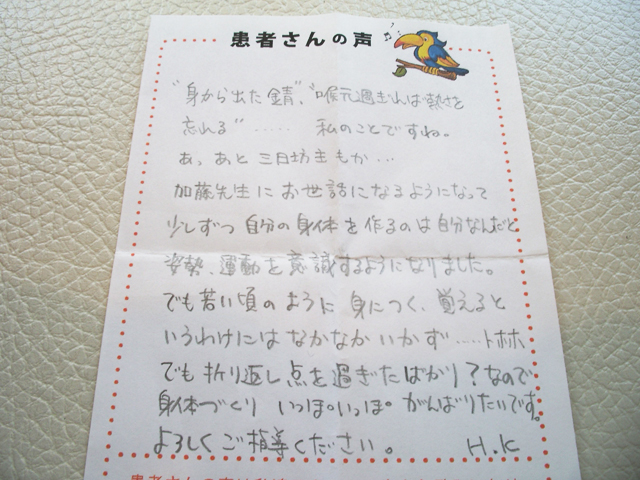 患者さんの声
"身から出た錆"、"喉元過ぎれば熱さを
忘れる"‥‥‥ 私のことですね。
あっ あと 三日坊主もか…
加藤先生に お世話になるようになって
少しずつ 自分の身体を作るのは自分なんだと
姿勢、運動を意識するようになりました。
でも若い頃のように 身につく、覚えると
いうわけには なかなか いかず‥‥‥トホホ
でも 折り返し点を過ぎたばかり？なので
身体づくり いっぽいっぽ がんばりたいです。
よろしくご指導ください。 H.K